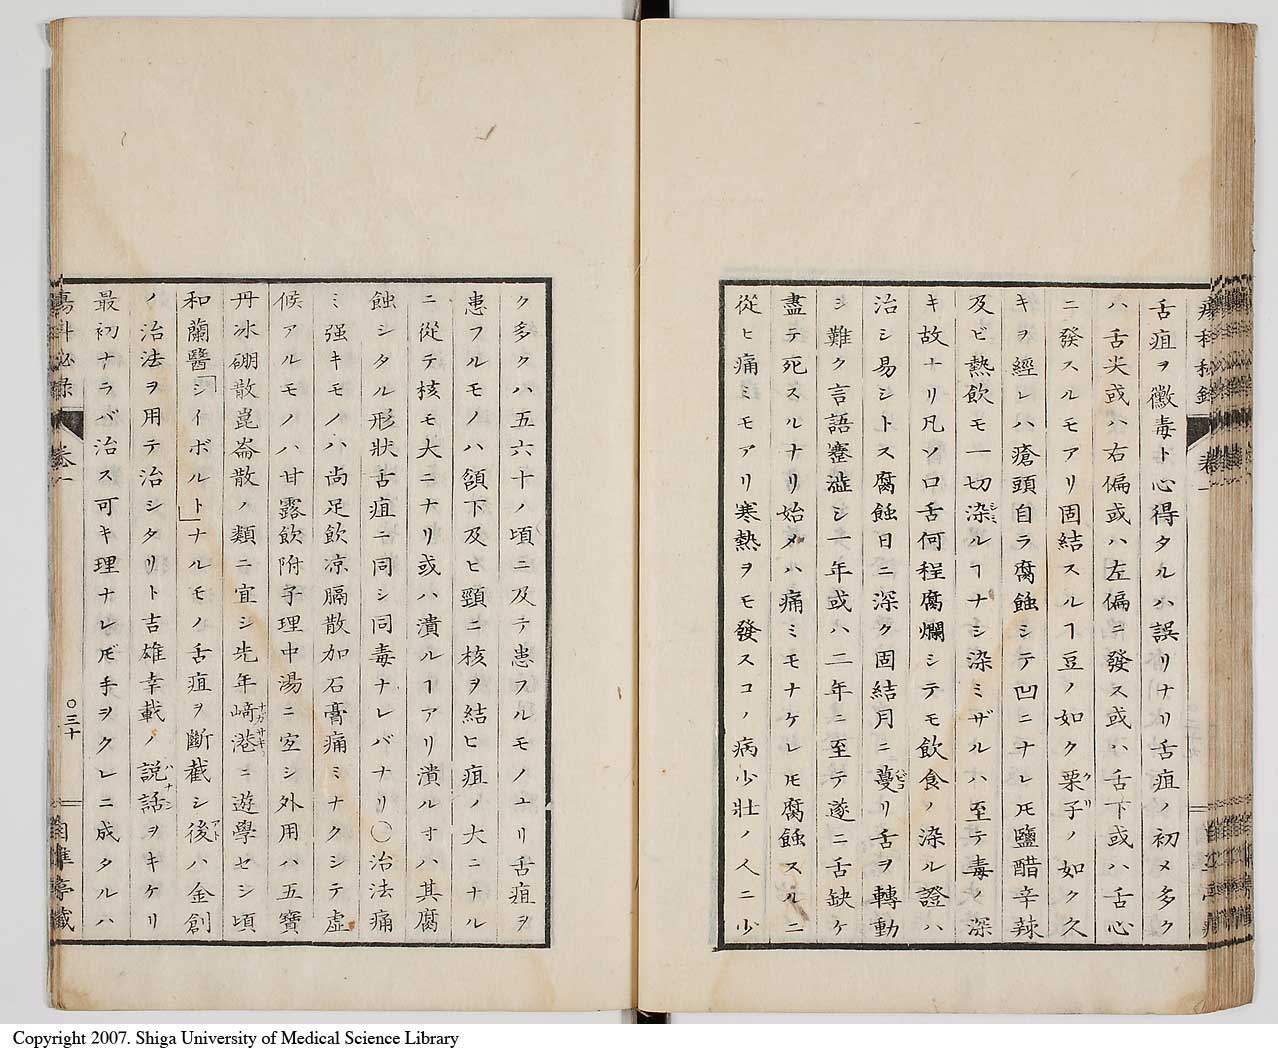 舌疽ヲ黴毒ト心得タルハ誤リナリ舌疽ノ初メ多ク
ハ舌尖或ハ右偏或ハ左偏ニ發ス或ハ舌下或ハ舌心
ニ發スルモアリ固結スルヿ豆ノ如ク栗子ノ如ク久
クリ
キヲ經レハ瘡頭自ラ腐蝕シテ凹ニナレ𪜈鹽醋辛辣
及ビ熱飲モ一切染ルヿナシ染ミザルハ至テ毒ノ深
キ故ナリ凡ソ口舌何程腐爛シテモ飲食ノ染ル證ハ
治シ易シトス腐蝕日ニ深ク固結月ニ蔓リ舌ヲ轉動
シ難ク言語蹇澁シ一年或ハ二年ニ至テ遂ニ舌缺ケ
盡テ死スルナリ始メハ痛ミモナケレ𪜈腐蝕スルニ
從ヒ痛ミモアリ寒熱ヲモ發スコノ病少壯ノ人ニ少
ク多クハ五六十ノ頃ニ及テ患フルモノユリ舌疽ヲ
患フルモノハ頷下及ヒ頸ニ核ヲ結ヒ疽ノ大ニナル
ニ從テ核モ大ニナリ或ハ潰ルヿアリ潰ルオハ其腐
蝕シタル形狀舌疽ニ同シ同毒ナレバナリ〇治法痛
ミ强キモノハ尚足飲凉膈散加石膏痛ミナクシテ虛
候アルモノハ甘露飲附子理中湯ニ宜シ外用ハ五寶
丹冰硼散崑崙散ノ類ニ宜シ先年崎港ニ遊學セシ頃
ナガサキ
和蘭醫「シイボルト」ナルモノ舌疽ヲ斷截シ後ハ金創
アト
ノ治法ヲ用テ治シタリト吉雄幸載ノ説話ヲキケリ
ハナシ
最初ナラバ治ス可キ理ナレ𪜈手ヲクレニ成タルハ
瘍科秘錄
卷一
〇三十
Copyright 2007. Shiga University of Medical Science Library